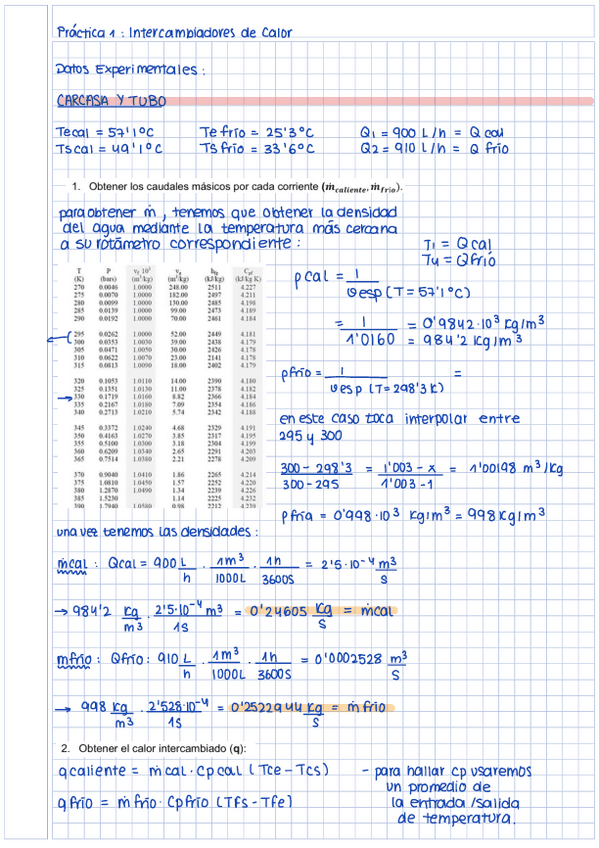 Práctica 1 : Intercambiadores de Calor
Datos Experimentales :
CARCASA Y TUBO
Tecal = 57'1°C Te frío = 25'3°C Q1 = 900 L/h = Q cal
Tscal = 49'1°C Ts frío = 33'6°C Q2 = 910 L/h = Q frío
1. Obtener los caudales másicos por cada corriente (ṁcaliente, ṁfrio).
para obtener ṁ, tenemos que obtener la densidad
del agua mediante la temperatura más cercana
a su rotámetro correspondiente :
T1 = Qcal
T4 = Qfrío
T P vf 10³ vg hfg Cpf
(K) (bars) (m³/kg) (m³/kg) (kJ/kg) (kJ/kg K)
270 0.0046 1.0000 248.00 2511 4.227
275 0.0070 1.0000 182.00 2497 4.211
280 0.0099 1.0000 130.00 2485 4.198
285 0.0139 1.0000 99.00 2473 4.189
290 0.0192 1.0000 70.00 2461 4.184
295 0.0262 1.0000 52.00 2449 4.181
300 0.0353 1.0030 39.00 2438 4.179
305 0.0471 1.0050 30.00 2426 4.178
310 0.0622 1.0070 23.00 2141 4.178
315 0.0813 1.0090 18.00 2402 4.179
320 0.1053 1.0110 14.00 2390 4.180
325 0.1351 1.0130 11.00 2378 4.182
330 0.1719 1.0160 8.82 2366 4.184
335 0.2167 1.0180 7.09 2354 4.186
340 0.2713 1.0210 5.74 2342 4.188
345 0.3372 1.0240 4.68 2329 4.191
350 0.4163 1.0270 3.85 2317 4.195
355 0.5100 1.0300 3.18 2304 4.199
360 0.6209 1.0340 2.65 2291 4.203
365 0.7514 1.0380 2.21 2278 4.209
370 0.9040 1.0410 1.86 2265 4.214
375 1.0810 1.0450 1.57 2252 4.220
380 1.2870 1.0490 1.34 2239 4.226
385 1.5230 1.14 2225 4.232
390 1.7940 1.0580 0.98 2212 4.239
ρcal = 1 / νesp (T = 57'1°C)
= 1 / 1'0160 = 0'9842·10³ Kg/m³
= 984'2 Kg/m³
ρfrío = 1 / νesp (T = 298'3 K) =
en este caso toca interpolar entre
295 y 300
300 - 298'3 / 300 - 295 = 1'003 - x / 1'003 - 1 = 1'00198 m³/Kg
ρ fría = 0'998·10³ Kg/m³ = 998 Kg/m³
una vez tenemos las densidades :
ṁcal : Qcal = 900 L/h · 1m³/1000L · 1h/3600s = 2'5·10⁻⁴ m³/s
→ 984'2 Kg/m³ · 2'5·10⁻⁴ m³/1s = 0'24605 Kg/s = ṁcal
ṁfrío : Qfrío : 910 L/h · 1m³/1000L · 1h/3600s = 0'0002528 m³/s
→ 998 Kg/m³ · 2'528·10⁻⁴/1s = 0'2522944 Kg/s = ṁ frío
2. Obtener el calor intercambiado (q):
q caliente = ṁ cal · Cp cal (Tce - Tcs) - para hallar cp usaremos
un promedio de
q frío = ṁ frío · Cp frío (Tfs - Tfe) la entrada/salida
de temperatura.